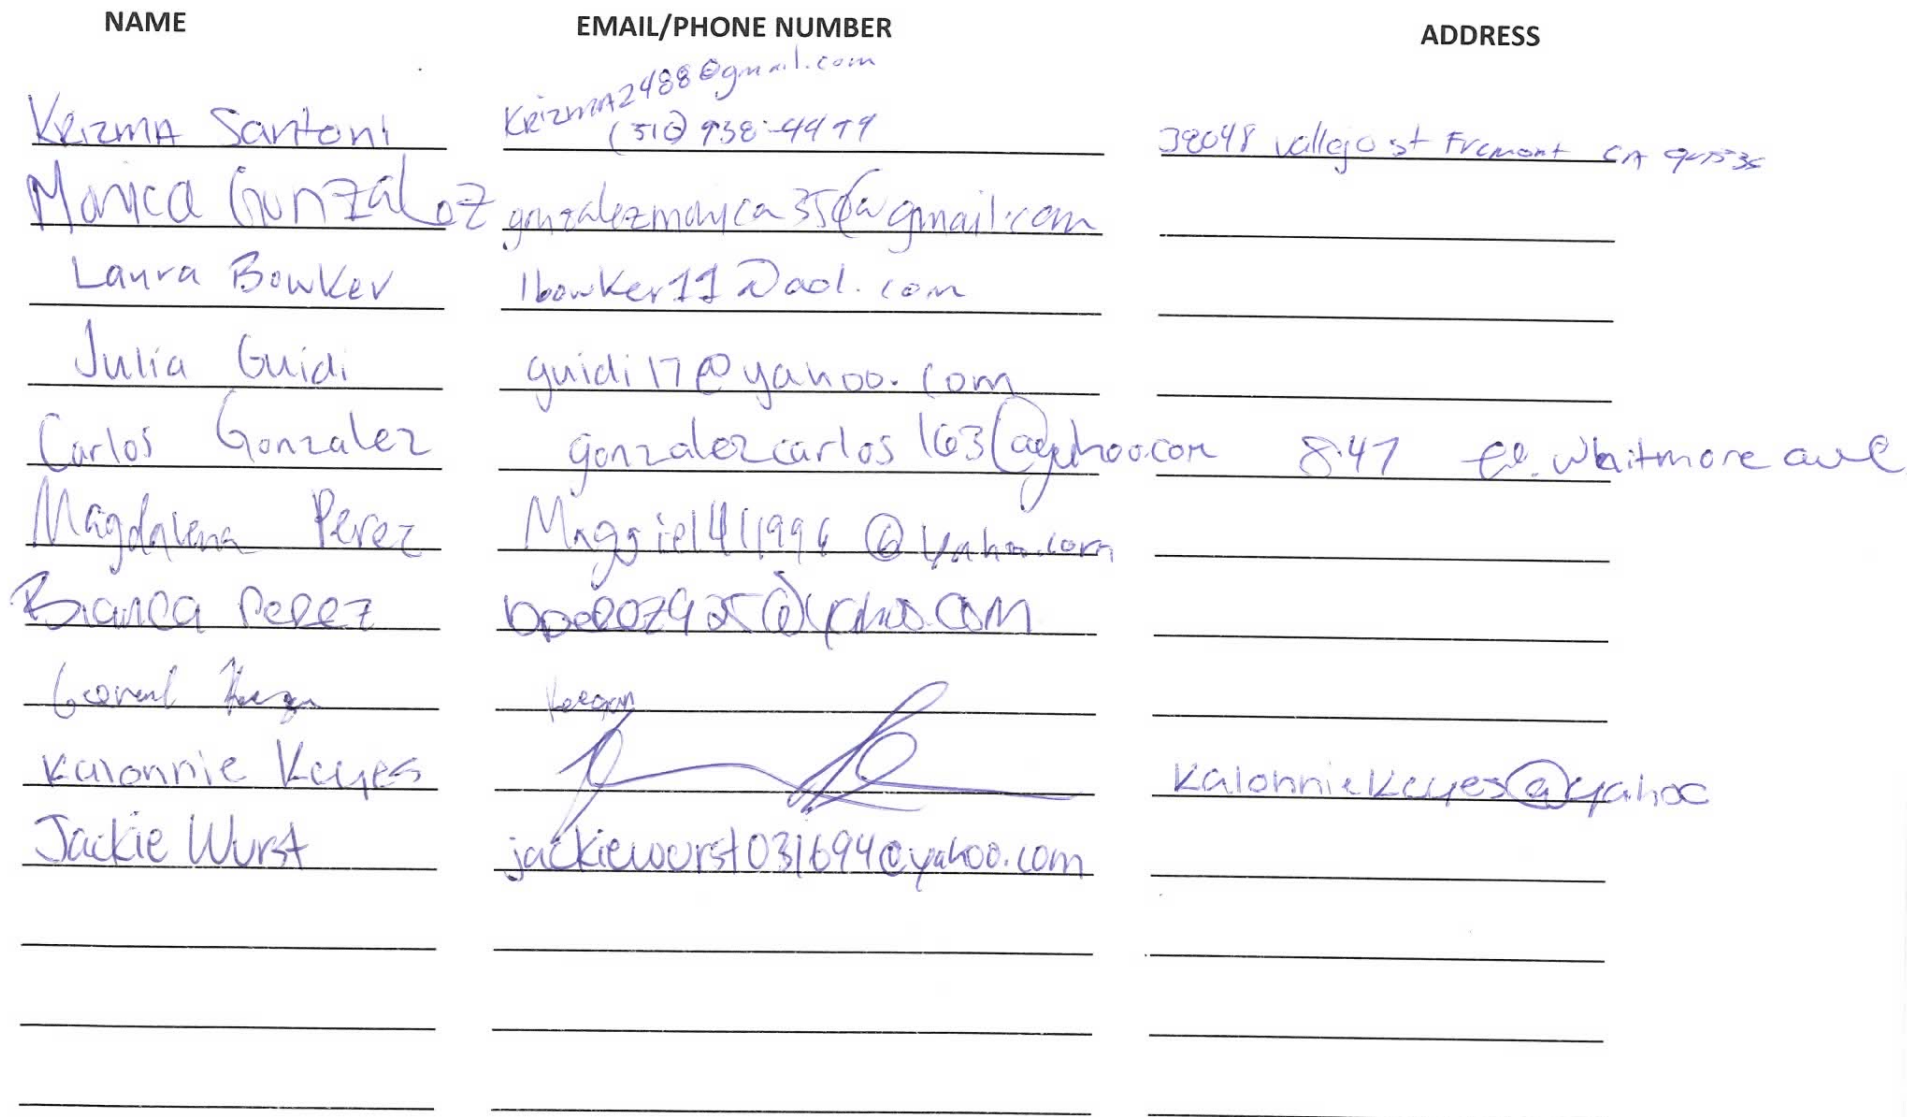 NAME EMAIL/PHONE NUMBER ADDRESS
Krizma2488@gmail.com
Krizma Santoni (510) 938-4479 38048 Vallejo st Fremont CA
Monica Gonzalez gonzalezmonica35@gmail.com
Laura Bowker lbowker11@aol.com
Julia Guidi guidi17@yahoo.com
Carlos Gonzalez gonzalezcarlos163@yahoo.com 847 e. Whitmore ave
Magdalena Perez Maggie1411996@yahoo.com
Bianca Perez bperez925@yahoo.com
Keegan
Kalonnie Keyes KalonnieKeyes@yahoo
Jackie Wurst jackiewurst031694@yahoo.com